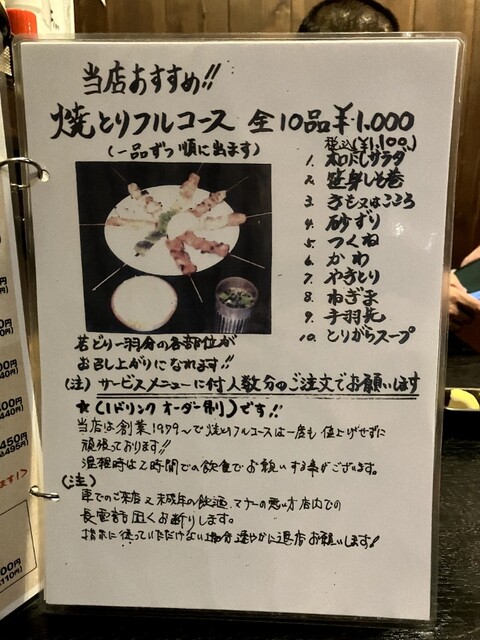 当店おすすめ!!
焼とりフルコース 全10品¥1.000
税込(¥1,100.)
(一品ずつ順に出ます)
1. 和だしサラダ
2. 笹身しそ巻
3. きも又はこころ
4. 砂ずり
5. つくね
6. かわ
7. やきとり
8. ねぎま
9. 手羽先
10. とりがらスープ
若どり一羽分の各部位が
お召し上がりになれます!!
(注) サービスメニューに付人数分のご注文でお願いします
★(1ドリンクオーダー制)です!!
当店は創業1979~で焼とりフルコースは一度も値上げせずに
頑張っております!!
混雑時は2時間での飲食でお願いする事がございます。
(注)
車でのご来店又未成年の飲酒、マナーの悪い方店内での
長電話固くお断りします。
指示に従っていただけない場合速やかに退店お願いします!